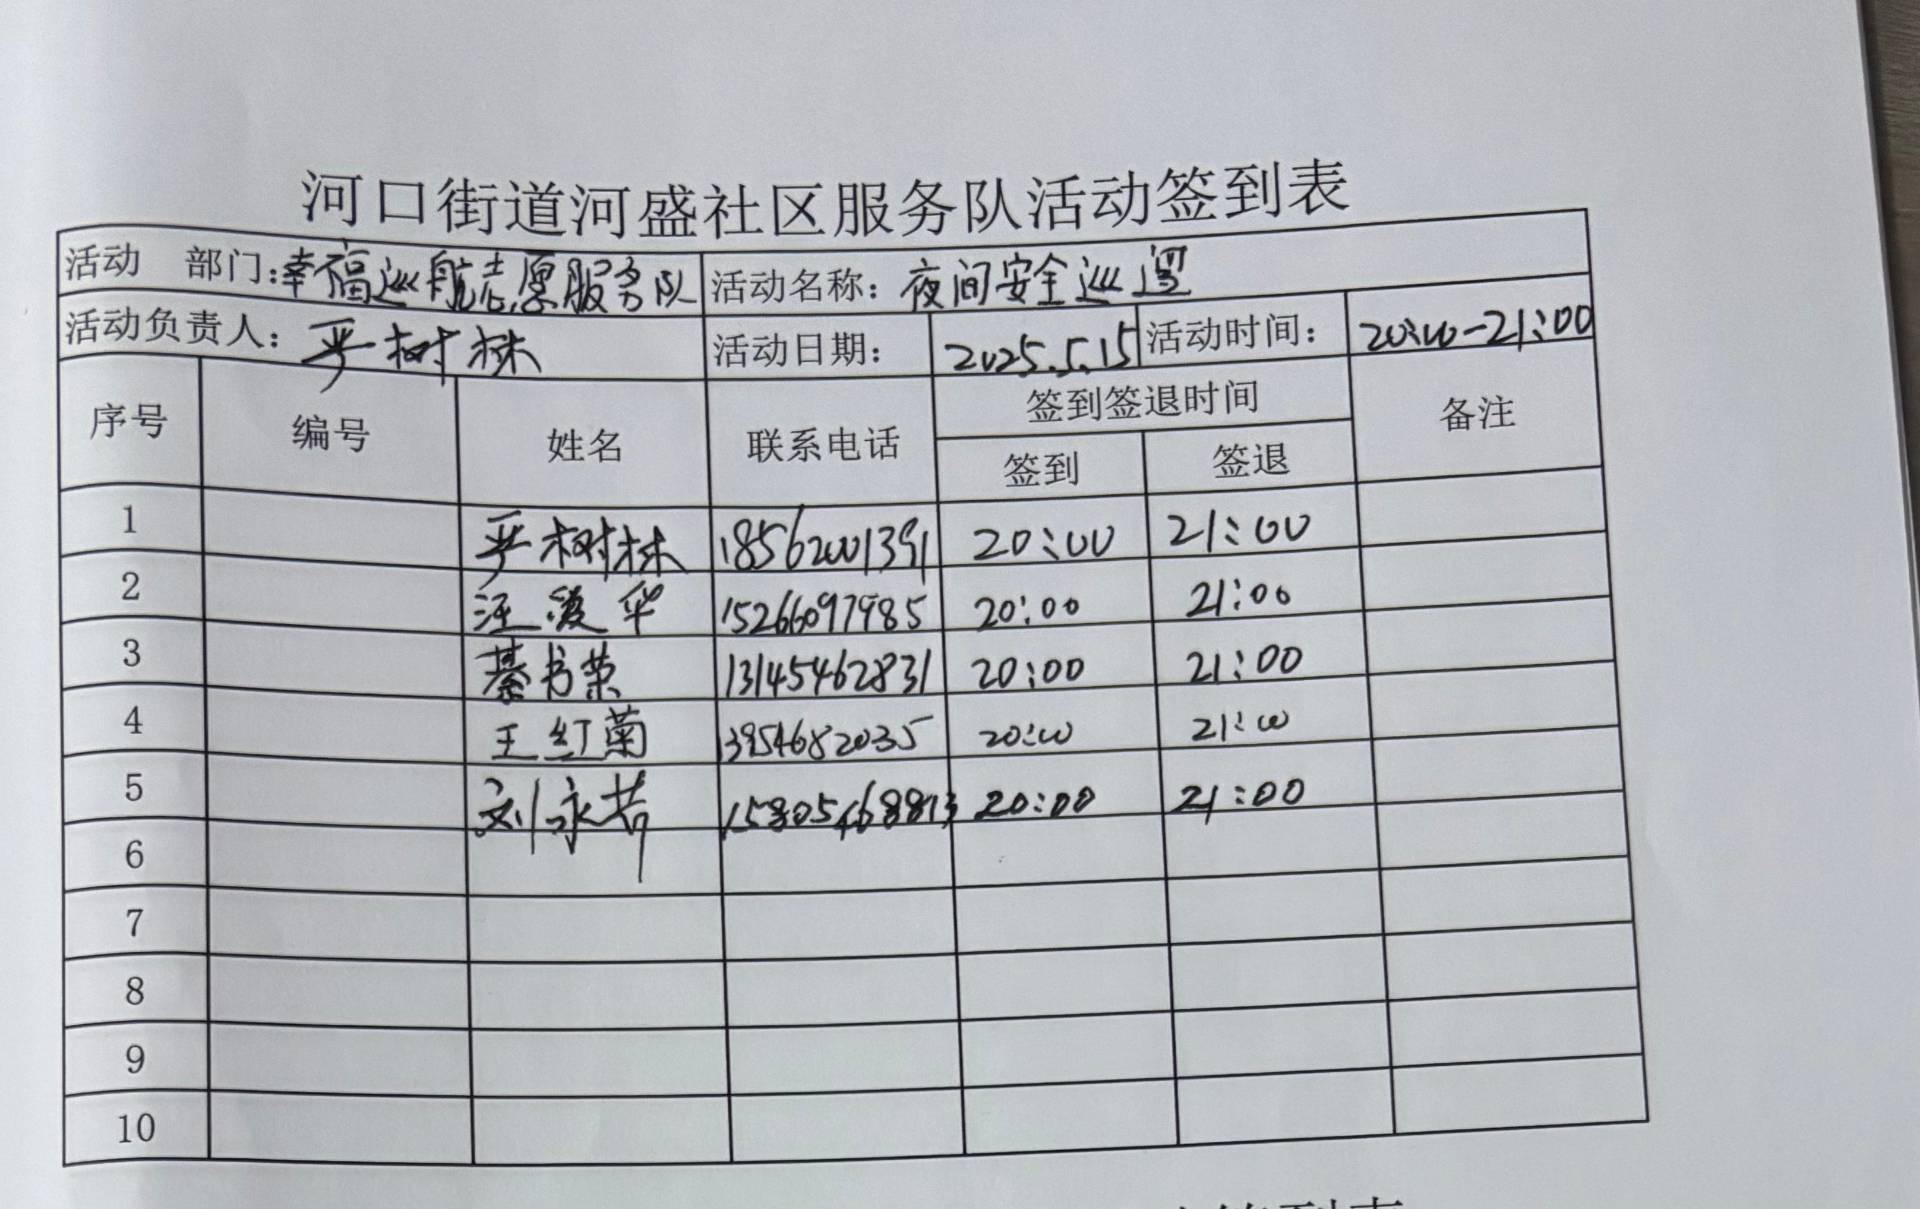 河口街道河盛社区服务队活动签到表
活动 部门：幸福巡航志愿服务队 活动名称：夜间安全巡逻
活动负责人：严树林 活动日期：2025.5.15 活动时间：20:00-21:00
序号 编号 姓名 联系电话 签到签退时间 备注
签到 签退
1 严树林 18562001391 20:00 21:00
2 汪爱华 15266097985 20:00 21:00
3 綦书荣 13145462831 20:00 21:00
4 王红菊 13954682035 20:00 21:00
5 刘永芳 15805468813 20:00 21:00
6
7
8
9
10